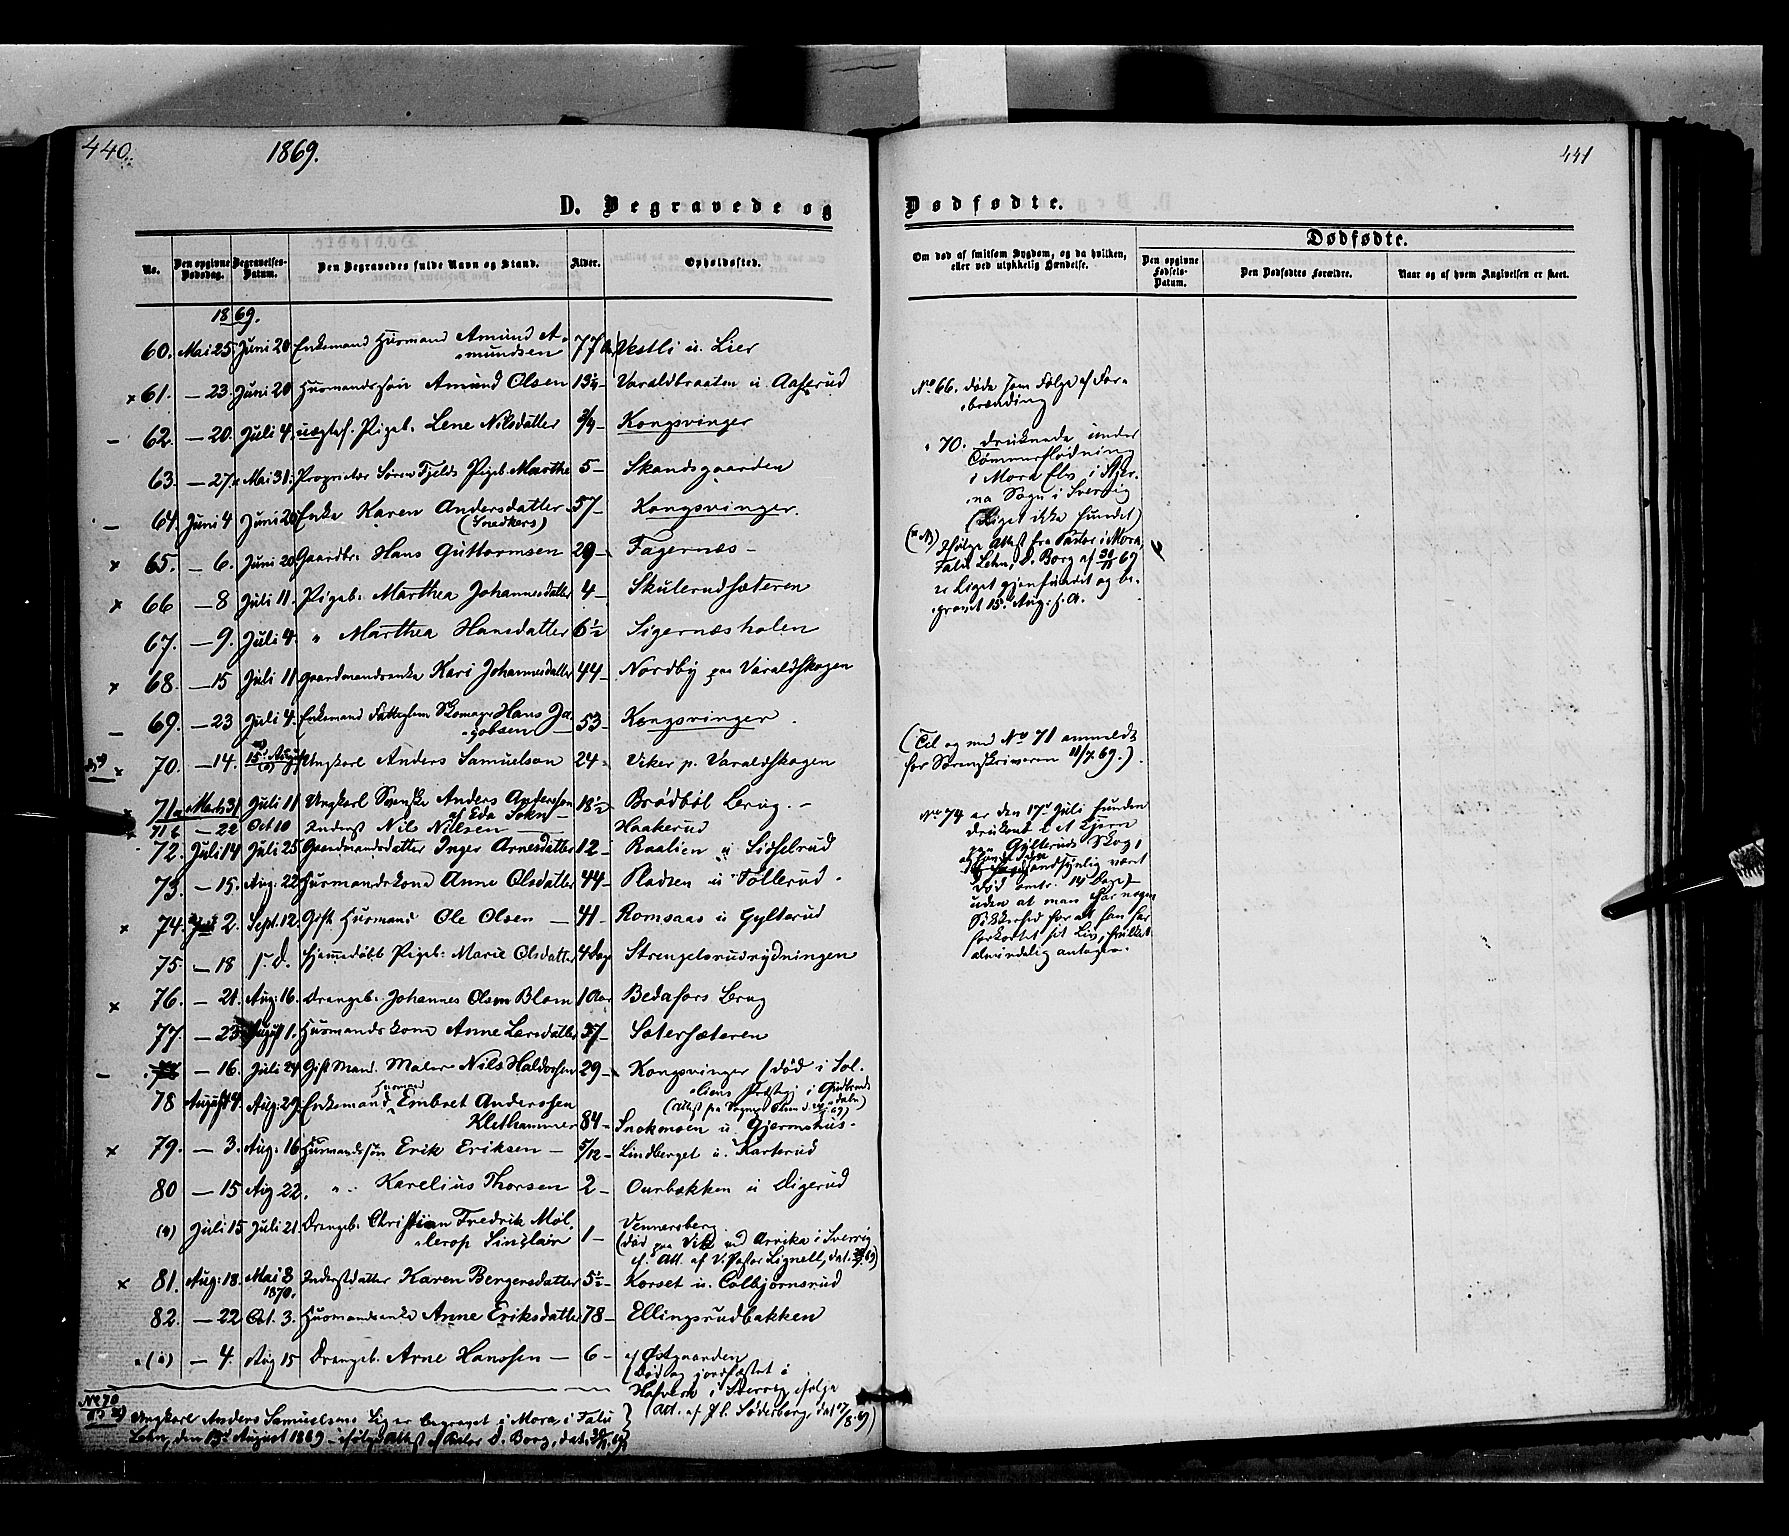 440.
1869.
D. Begravede og
No.
Den opgivne Dødsdag.
Begravelses-Datum.
Den Begravedes fulde Navn og Stand.
Alder.
Opholdssted.
1869.
60. Mai 25. Juni 20 Enkemand Husmand Amund A-
mundsen 77 Vestli u. Lier
61. — 23. Juni 20 Husmandssøn Amund Olsen Varaldbraaten u. Aaserud
62. — 20. Juli 4. uægtef. Pigeb. Lene Nilsdatter 3/4 – Kongsvinger
63. — 27. Mai 31. Proprietær Søren Fjelds Pigeb. Marthe 5 – Skandsgaarden
64. Juni 4 Juni 20 Enke Karen Andersdatter 57 – Kongsvinger.
(Snedkers)
65. — 6. Juni 20 Gaardbr. Hans Guttormsen 29 – Fagernæs –
66 — 8 Juli 11. Pigeb. Marthea Johannesdatter 4 – Skulerudsæteren
67. — 9. Juli 4. " Marthea Hansdatter 6½ Sigernæsholen
68. — 15 Juli 11 Gaardmandsenke Kari Johannesdatter 44 – Nordby paa Varaldskogen
69. — 23 Juli 4. Enkemand Fattiglem Skomager Hans Ja-
cobsen 53 – Kongsvinger.
70. — 14. 15. August Ungkarl Anders Samuelson 24 – Viker p. Varaldskogen
71a Marts 31 Juli 11 Ungkarl Svenske Anders Andersson 18½ Brødbøl Brug. –
af Eda Sokn
71b — 22 Oct 10 Inderst Nils Nilsen — Haakerud
72. Juli 14 Juli 25 Gaardmandsdatter Inger Arnesdatter 12 – Raalien u. Sidselrud
73. — 15. Aug. 22 Husmandskone Anne Olsdatter 44 – Pladsen u. Tollerud.
74. Juli 2. Sept. 12. Gift Husmand Ole Olsen — 41 – Romsaas u. Gylterud
75. — 18 s. d. Hjemmedøbt Pigeb. Marie Olsdatter 4 Dag Strengelsrudrydningen
76. — 21. Aug. 16. Drengeb. Johannes Olsen Blom 1 Aar Bedafors Brug
77. — 23. August 1. Husmandskone Anne Larsdatter 37 – Sætersæteren
— 16. Juli 24 Gift Mand. Maler Nils Haldorsen 29 – Kongsvinger (død i Sol-
liens Præstegj. i Gudbrands
dalen)
78 August 4. Aug. 29. Enkemand Husmand Embret Anderssen
Klethammer 84 – Snekmoen u. Gjermshus –
79. — 3. Aug. 16 Husmandssøn Erik Eriksen — 5/12 – Lindberget u. Karterud
80 — 15 Aug 22. " Karelius Thorsen 2 – Ourbækken u. Digerud
(a) Juli 15 Juli 21. Drengeb. Christian Fredrik Møl-
lerop Sinclair 1 – Vennersberg
(død paa Vik ved Arvika i Sverrig
cf. Att. af V. Pastor Lignell, dat.
81. Aug. 18. Mai 8 1870. Inderstdatter Karen Bergersdatter 5½ – Korset u. Colbjørnsrud
82. — 22 Oct. 3. Husmandsenke Anne Eriksdatter 78 – Ellingsrudbakken
(a) — 4. Aug 15 Drengeb. Arne Hanssen — 6 – Østgaarden
(Død og jordfæstet i
i Sverrig ifølge
Att. af Söderberg, dat. 7/8 69)
No 70
Ungkarl Anders Samuelsons Lig er begravet i Mora i Falu
Lehn, den 15d August 1869 – ifølge Attest af Pastor D. Borg, dat.
441
Dødfødte.
Om død af smitsom Sygdom, og da hvilken,
eller ved ulykkelig Hændelse.
Dødfødte.
Den opgivne Fødsels-Datum.
Den Dødfødtes Forældre.
Naar og af hvem Angivelsen er skeet.
No 66. døde som Følge af For-
brænding
" 70. druknede under
Tømmerflødning
i Mora Elv i Stjer-
na Sogn i Sverrig
(Liget ikke fundet)
(NB) Ifølge Attest fra Pastor i Mora,
Falu Lehn, D. Borg af 69
er Liget gjenfundet og be-
gravet 15. Aug. s. A.
(Til og med No 71 anmeldt
for Sorenskriveren 11/7 69.)
No 74 er den 17d Juli funden
druknet i et Kjern
paa Gylterud Skog,
sandsynlig været
død omtr. 14 Dage
uden at man har nogen
Sikkerhed for at han har
forkortet sit Liv, hvilket
almindelig antages.